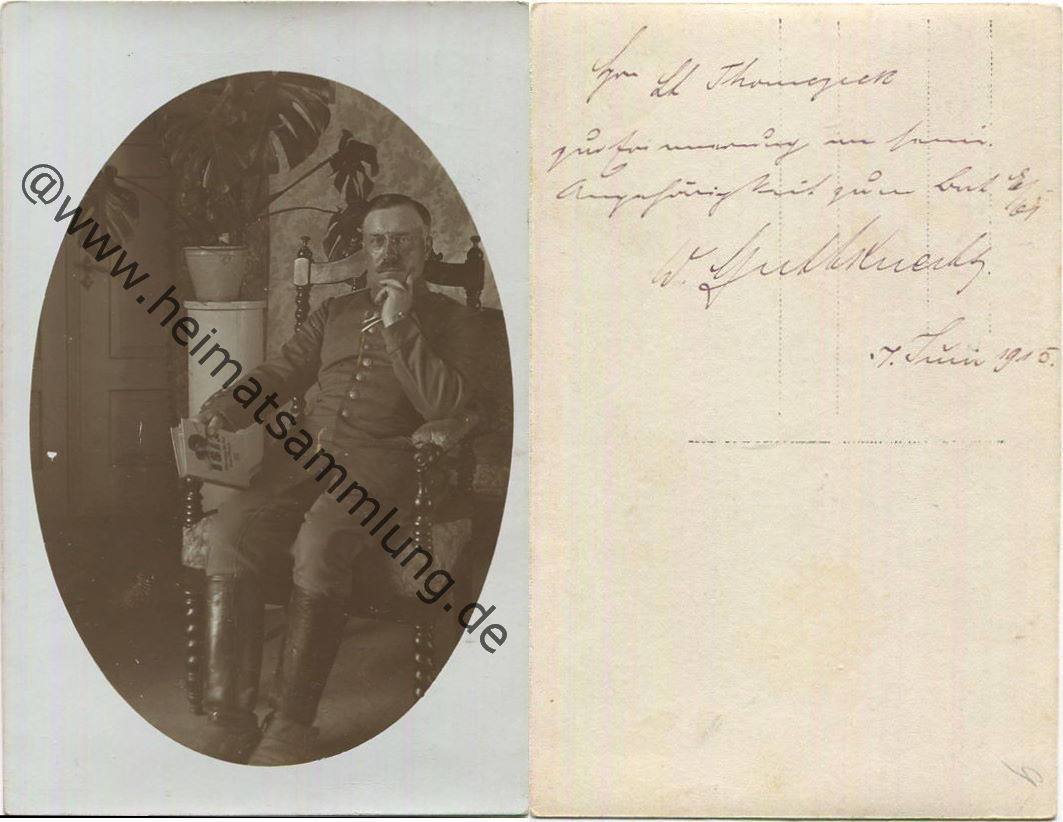 @www.heimatsammlung.de
Lt Thomczeck
zur Erinnerung an seine
Angehörigkeit zum Bat.
W. Guthknecht.
7. Juni 1915.